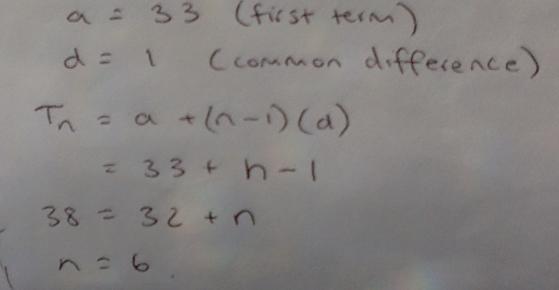 a = 33 (first term)
d = 1 (common difference)
Tn = a + (n-1)(d)
= 33 + n - 1
38 = 32 + n
n = 6.